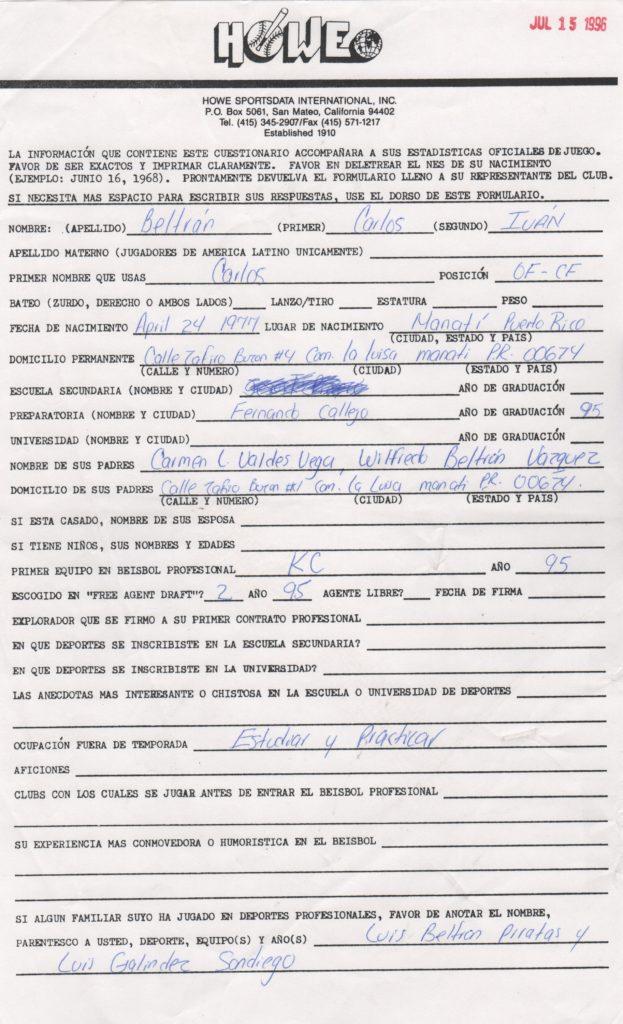 JUL 15 1996
HOWE
HOWE SPORTSDATA INTERNATIONAL, INC.
P.O. Box 5061, San Mateo, California 94402
Tel. (415) 345-2907/Fax (415) 571-1217
Established 1910
LA INFORMACIÓN QUE CONTIENE ESTE CUESTIONARIO ACCOMPAÑARA A SUS ESTADISTICAS OFICIALES DE JUEGO.
FAVOR DE SER EXACTOS Y IMPRIMAR CLARAMENTE. FAVOR EN DELETREAR EL NES DE SU NACIMIENTO
(EJEMPLO: JUNIO 16, 1968). PRONTAMENTE DEVUELVA EL FORMULARIO LLENO A SU REPRESENTANTE DEL CLUB.
SI NECESITA MAS ESPACIO PARA ESCRIBIR SUS RESPUESTAS, USE EL DORSO DE ESTE FORMULARIO.
NOMBRE: (APELLIDO) Beltrán (PRIMER) Carlos (SEGUNDO) IVÁN
APELLIDO MATERNO (JUGADORES DE AMERICA LATINO UNICAMENTE)
PRIMER NOMBRE QUE USAS Carlos POSICIÓN OF-CF
BATEO (ZURDO, DERECHO O AMBOS LADOS) LANZO/TIRO ESTATURA PESO
FECHA DE NACIMIENTO April 24 1977 LUGAR DE NACIMIENTO Manatí Puerto Rico
(CIUDAD, ESTADO Y PAIS)
DOMICILIO PERMANENTE Calle Zafiro Buzon #4 Com. la luisa manati P.R. 00674
(CALLE Y NUMERO) (CIUDAD) (ESTADO Y PAIS)
ESCUELA SECUNDARIA (NOMBRE Y CIUDAD) AÑO DE GRADUACIÓN
PREPARATORIA (NOMBRE Y CIUDAD) Fernando Callejo AÑO DE GRADUACIÓN 95
UNIVERSIDAD (NOMBRE Y CIUDAD) AÑO DE GRADUACIÓN
NOMBRE DE SUS PADRES Carmen L. Valdes Vega, Wilfredo Beltrán Vazquez
DOMICILIO DE SUS PADRES Calle Zafiro Buzon #1 Com. la Luisa manati P.R. 00674.
(CALLE Y NUMERO) (CIUDAD) (ESTADO Y PAIS)
SI ESTA CASADO, NOMBRE DE SUS ESPOSA
SI TIENE NIÑOS, SUS NOMBRES Y EDADES
PRIMER EQUIPO EN BEISBOL PROFESIONAL KC AÑO 95
ESCOGIDO EN "FREE AGENT DRAFT"? 2 AÑO 95 AGENTE LIBRE? FECHA DE FIRMA
EXPLORADOR QUE SE FIRMO A SU PRIMER CONTRATO PROFESIONAL
EN QUE DEPORTES SE INSCRIBISTE EN LA ESCUELA SECUNDARIA?
EN QUE DEPORTES SE INSCRIBISTE EN LA UNIVERSIDAD?
LAS ANECDOTAS MAS INTERESANTE O CHISTOSA EN LA ESCUELA O UNIVERSIDAD DE DEPORTES
OCUPACIÓN FUERA DE TEMPORADA Estudiar y Practicar
AFICIONES
CLUBS CON LOS CUALES SE JUGAR ANTES DE ENTRAR EL BEISBOL PROFESIONAL
SU EXPERIENCIA MAS CONMOVEDORA O HUMORISTICA EN EL BEISBOL
SI ALGUN FAMILIAR SUYO HA JUGADO EN DEPORTES PROFESIONALES, FAVOR DE ANOTAR EL NOMBRE,
PARENTESCO A USTED, DEPORTE, EQUIPO(S) Y AÑO(S) Luis Beltrán Piratas y
Luis Galindez Sandiego